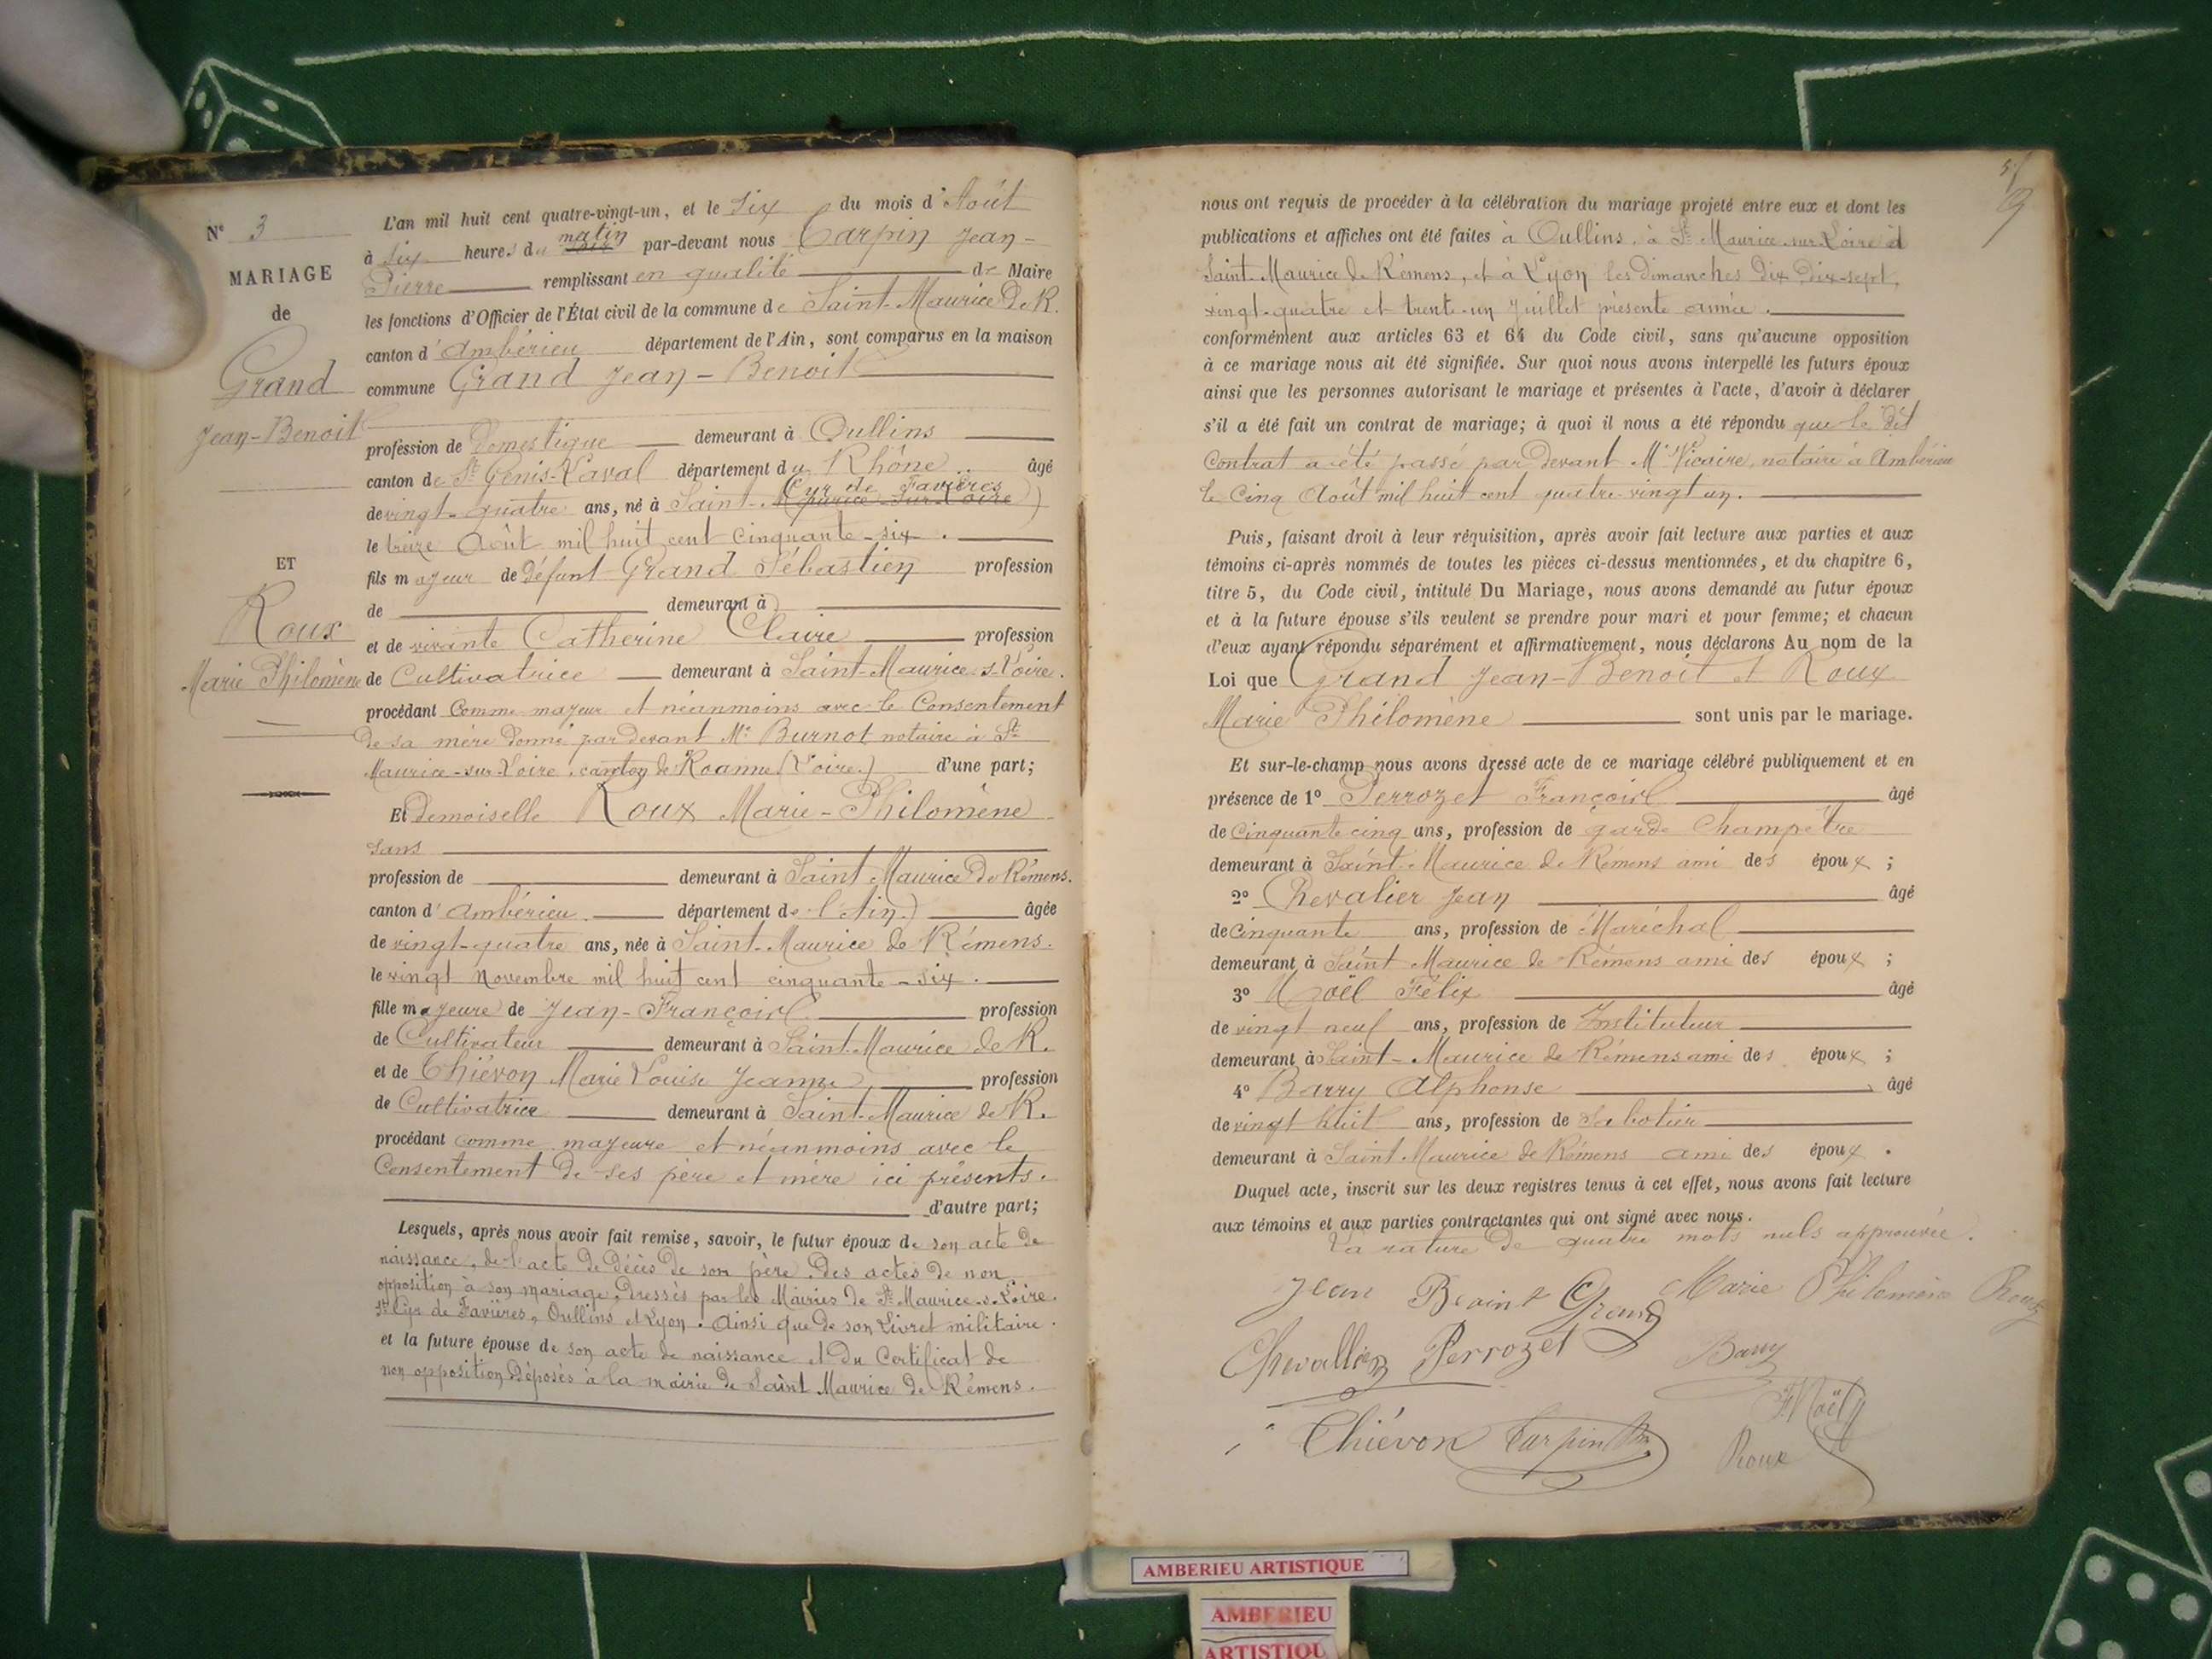 N° 3
MARIAGE
de
Grand
Jean-Benoit
ET
Roux
Marie Philomène
L'an mil huit cent quatre-vingt-un, et le six du mois d'Août
à six heures du soir matin par-devant nous Tarpin Jean-
Pierre remplissant en qualité de Maire
les fonctions d'Officier de l'État civil de la commune de Saint-Maurice de R.
canton d'Ambérieu département de l'Ain, sont comparus en la maison
commune Grand Jean-Benoit
profession de Domestique demeurant à Oullins
canton de St Genis-Laval département du Rhône âgé
de vingt-quatre ans, né à Saint-Maurice-sur-Loire Cyr de Favières)
le treize Août mil huit cent cinquante-six.
fils majeur de défunt Grand Sébastien profession
de demeurant à
et de vivante Catherine Claire profession
de Cultivatrice demeurant à Saint-Maurice-s-Loire.
procédant Comme majeur et néanmoins avec le Consentement
de sa mère donné par devant Me Burnot notaire à St
Maurice-sur-Loire, canton de Roanne (Loire.) d'une part;
Et Demoiselle Roux Marie-Philomène
sans
profession de demeurant à Saint Maurice de Rémens.
canton d'Ambérieu département de l'Ain.) âgée
de vingt-quatre ans, née à Saint-Maurice de Rémens.
le vingt novembre mil huit cent cinquante-six.
fille majeure de Jean-François profession
de Cultivateur demeurant à Saint-Maurice de R.
et de Thiévon Marie Louise Jeanne profession
de Cultivatrice demeurant à Saint-Maurice de R.
procédant comme majeure et néanmoins avec le
Consentement de ses père et mère ici présents.
d'autre part;
Lesquels, après nous avoir fait remise, savoir, le futur époux de son acte de
naissance, de l'acte de décès de son père, des actes de non
opposition à son mariage, dressés par les Mairies de St Maurice-s-Loire,
St Cyr de Favières, Oullins et Lyon. Ainsi que de son Livret militaire.
et la future épouse de son acte de naissance et du Certificat de
non opposition déposés à la mairie de Saint Maurice de Rémens.
nous ont requis de procéder à la célébration du mariage projeté entre eux et dont les
publications et affiches ont été faites à Oullins, à St Maurice-sur-Loire à
Saint-Maurice de Rémens, et à Lyon les dimanches dix Dix-sept,
vingt-quatre et trente-un Juillet présente année.
conformément aux articles 63 et 64 du Code civil, sans qu'aucune opposition
à ce mariage nous ait été signifiée. Sur quoi nous avons interpellé les futurs époux
ainsi que les personnes autorisant le mariage et présentes à l'acte, d'avoir à déclarer
s'il a été fait un contrat de mariage; à quoi il nous a été répondu que le dit
Contrat a été passé par devant Me Vicaire, notaire à Ambérieu
le Cinq Août mil huit cent quatre-vingt un.
Puis, faisant droit à leur réquisition, après avoir fait lecture aux parties et aux
témoins ci-après nommés de toutes les pièces ci-dessus mentionnées, et du chapitre 6,
titre 5, du Code civil, intitulé Du Mariage, nous avons demandé au futur époux
et à la future épouse s'ils veulent se prendre pour mari et pour femme; et chacun
d'eux ayant répondu séparément et affirmativement, nous déclarons Au nom de la
Loi que Grand Jean-Benoit et Roux
Marie Philomène sont unis par le mariage.
Et sur-le-champ nous avons dressé acte de ce mariage célébré publiquement et en
présence de 1° Perrozet François âgé
de Cinquante cinq ans, profession de garde Champêtre
demeurant à Saint Maurice de Rémens ami des époux;
2° Chevalier Jean âgé
de Cinquante ans, profession de Maréchal
demeurant à Saint Maurice de Rémens ami des époux;
3° Noël Félix âgé
de vingt neuf ans, profession de Instituteur
demeurant à Saint-Maurice de Rémens ami des époux;
4° Barry Alphonse âgé
de vingt huit ans, profession de Sabotier
demeurant à Saint-Maurice de Rémens ami des époux.
Duquel acte, inscrit sur les deux registres tenus à cet effet, nous avons fait lecture
aux témoins et aux parties contractantes qui ont signé avec nous.
La rature de quatre mots nuls approuvée.
Jean Benoint Grand Marie Philomène Roux
Chevallier Perrozet Barry
F Noël
Thiévon Tarpin Roux
AMBERIEU ARTISTIQUE
AMBERIEU
ARTISTIQU